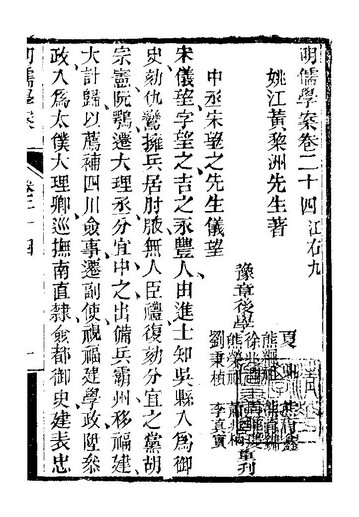 明儒學案卷二十四 江右九
姚江黃黎洲先生著
豫章後學
夏
熊
劉秉楨 李真實
重刊
中丞朱望之先生儀望
宋儀望字望之吉之永豐人由進士知吳縣入爲御
史劾仇鸞擁兵居肘腋無人臣禮復劾分宜之黨胡
宗憲阮鶚遷大理丞分宜中之出備兵霸州移福建
大計歸以薦補四川僉事遷副使視福建學政陞叅
政入爲太僕大理卿巡撫南直隸僉都御史建表忠
明儒學案
卷二十四
一